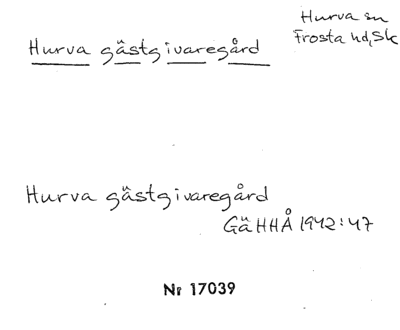 Hurva sn
Frosta hd, Sk
Hurva gästgivaregård
Hurva gästgivaregård
GäHHÅ 1942:47
Nr 17039